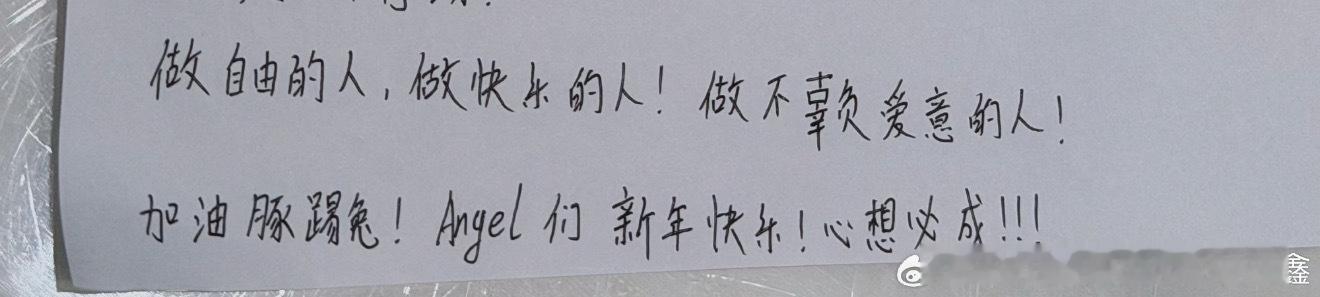 做自由的人，做快乐的人！做不辜负爱意的人！
加油豚踢兔！Angel们 新年快乐！心想必成!!!
鑫